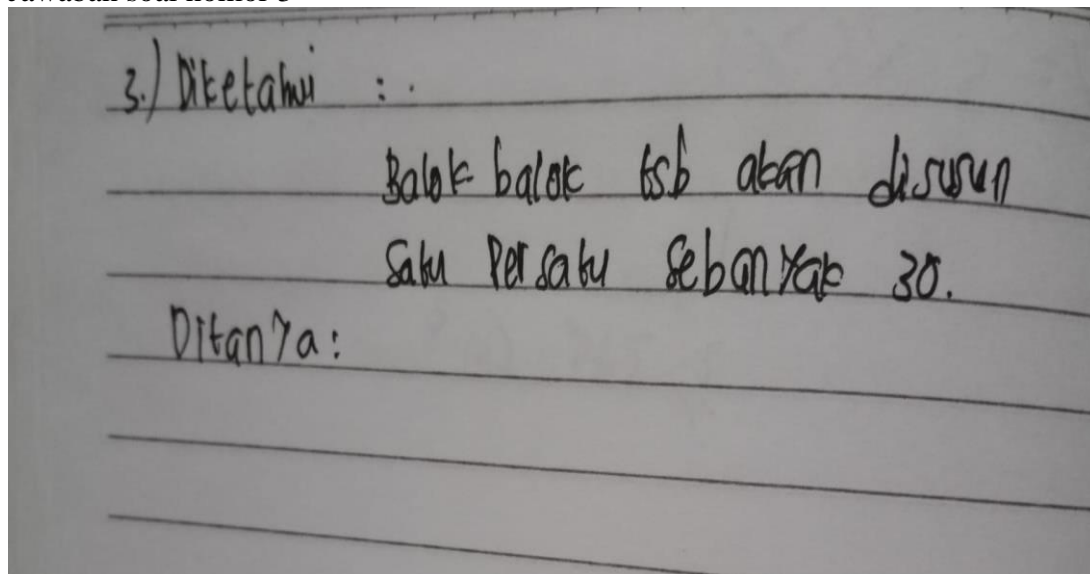 3.) Diketahui :.
Balok balok tsb akan disusun
Satu Persatu Sebanyak 30.
Ditanya: